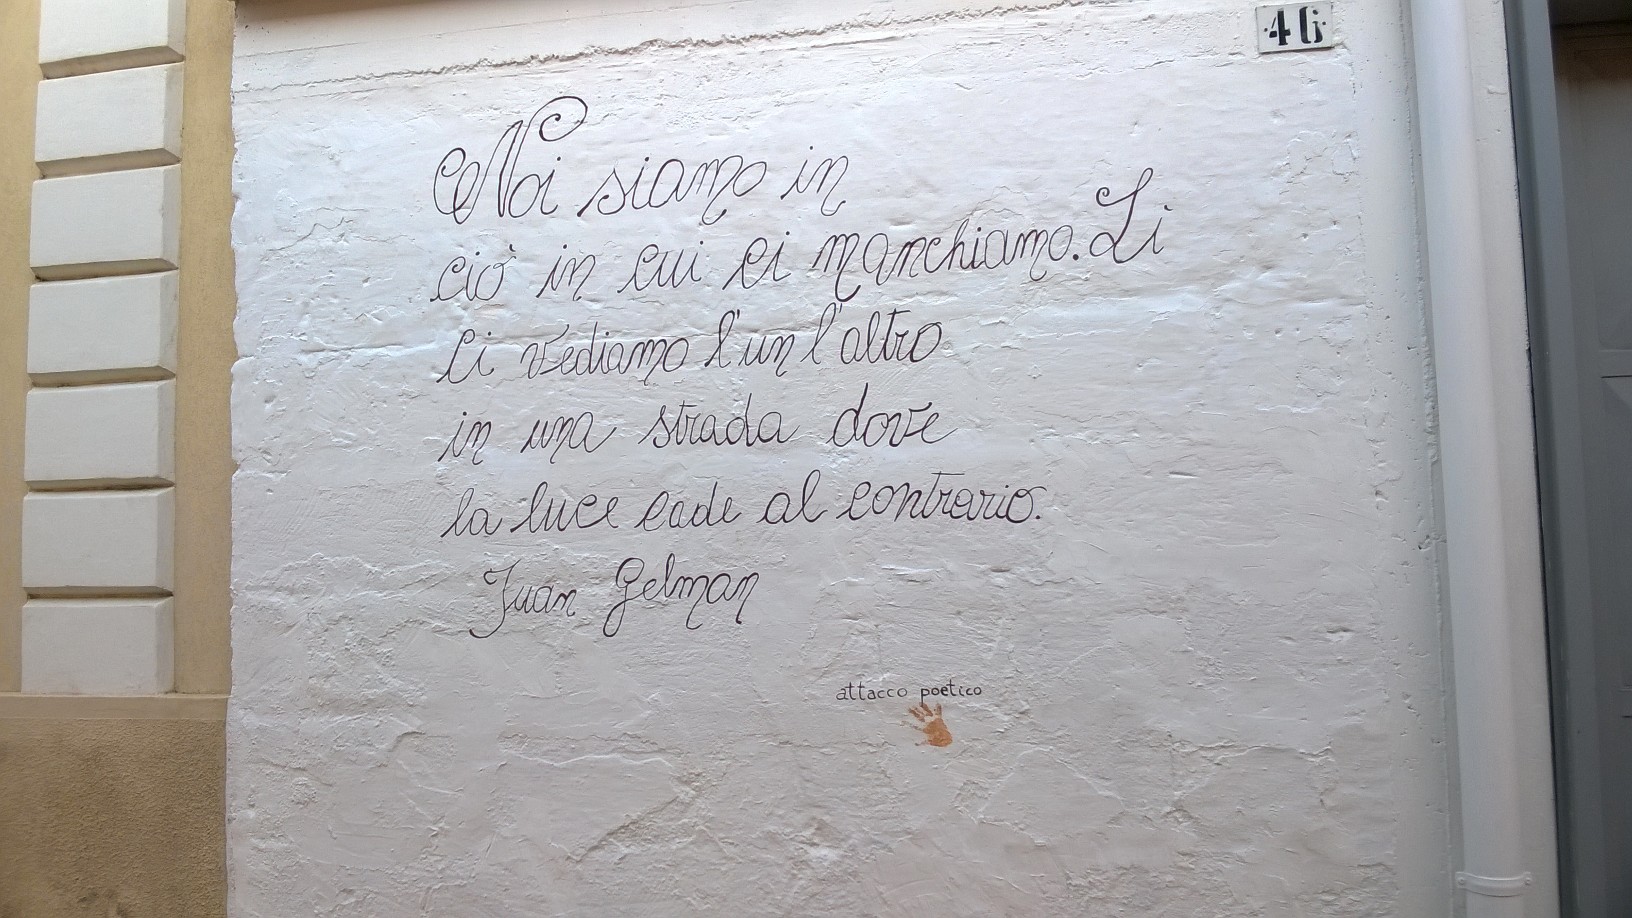 46
Noi siamo in
ciò in cui ci manchiamo. Li
ci vediamo l'un l'altro
in una strada dove
la luce cade al contrario.
Juan Gelman
attacco poetico